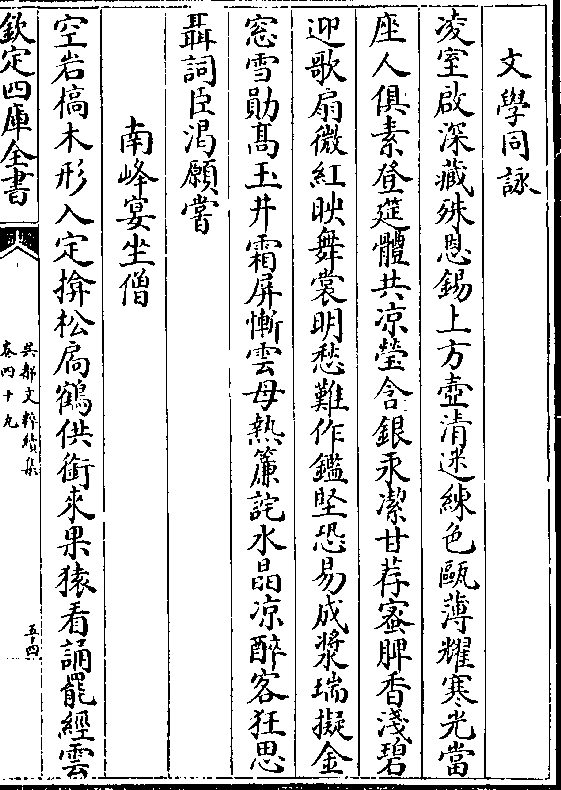 文學同詠
凌室啟深藏殊恩錫上方壺清迷練色甌薄耀寒光當
座人俱素登筵體共凉瑩含銀汞潔甘荐蜜脾香淺碧
迎歌扇微紅映舞裳明愁難作鑑堅恐易成漿瑞擬金
窓雪勛髙玉井霜屏慚雲母熱簾詫水晶凉醉客狂思
聶詞臣渴願嘗
南峰宴坐僧
空岩槁木形入定揜松扃鶴供銜來果猿看誦罷經雲
欽定四庫全書
吳都文粹續集
卷四十九
五十四